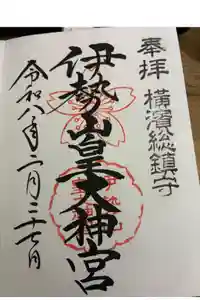 奉拝 横濱総鎮守
伊勢山皇大神宮
令和八年二月二十七日